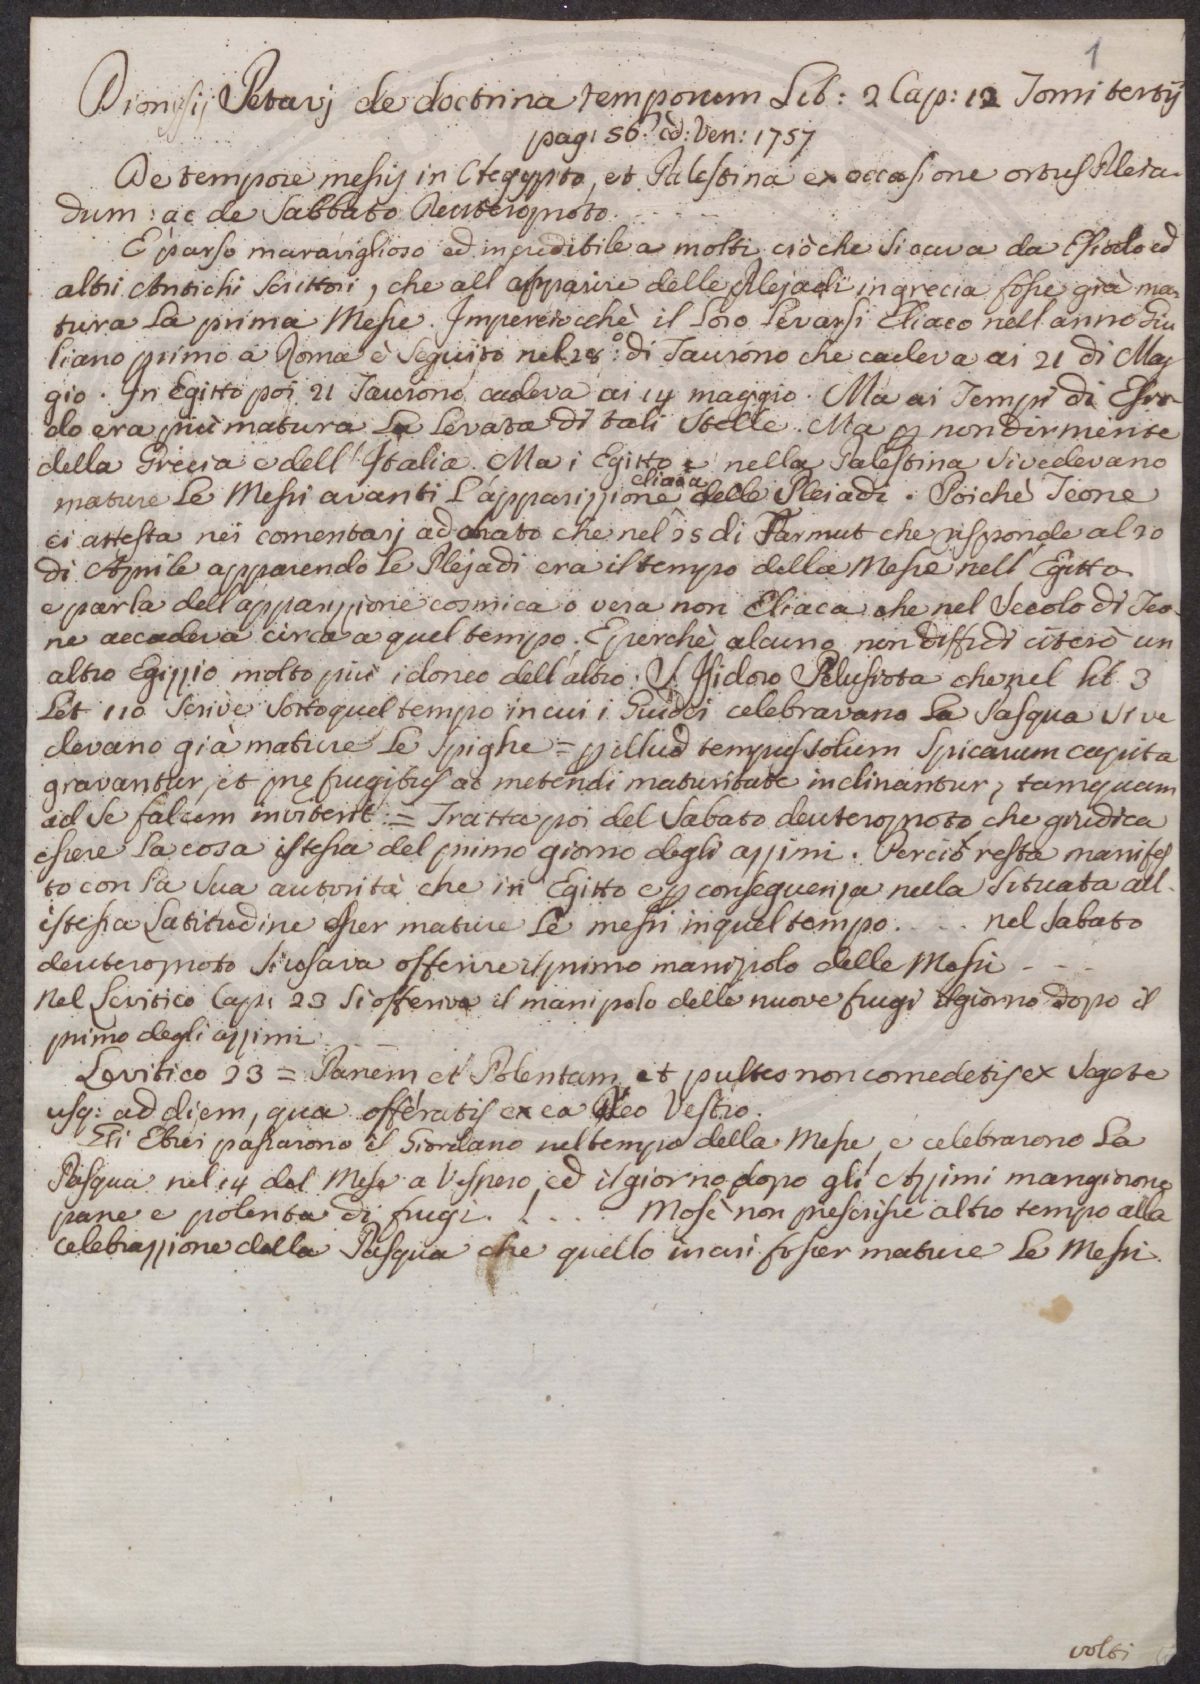 1
Dionysij Petavj de doctrina temporum Lib: 2 Cap: 12 Tomi tertij
pag: 56. ed: Ven: 1757
De tempore messis in Aegypto, et Palestina ex occasione ortus Pleia-
dum: ac de Sabbato Deuteroproto. . . . . .
E' parso maraviglioso ed incredibile a molti ciò che si cava da Esiodo ed
altri Antichi Scrittori, che all apparire delle Plejadi in grecia fosse già ma-
tura la prima Messe. Imperciocchè il loro levarsi Eliaco nell anno Giu
liano primo a Roma è seguito nel 28°: di Taurono che cadeva ai 21 di Mag
gio. In Egitto poi 21 Taurono cadeva ai 14 maggio. Ma ai Tempi di Esio-
do era più matura la levata di tali Stelle. Ma
della Grecia e dell' Italia. Ma i Egitto e nella Palestina si vedevano
eliaca
mature le Messi avanti l'apparizzione delle Pleiadi. Poichè Teone
ci attesta nei comentarj ad Arato che nel 25 di Farmut che risponde al 20
di Aprile apparendo le Plejadi era il tempo della Messe nell' Egitto
e parla dell apparizzione cosmica o vera non Eliaca che nel Secolo di Teo-
ne accadeva circa a quel tempo. E perchè alcuno non diffidi citerò un
altro Egizzio molto più idoneo dell'altro. S. Isidoro Pelusiota che nel lib 3
Let 110 scrive sotto quel tempo in cui i Giudei celebravano la Pasqua si ve
devano già mature le spighe = p illud tempus solum spicarum capita
gravantur, et prę frugibus ac metendi maturitate inclinantur, tamquam
ad se falcem invitent = Tratta poi del Sabato deuteroproto che giudica
essere la cosa istessa del primo giorno degli azzimi. Perciò resta manifes
to con la sua autorità che in Egitto e p conseguenza nella situata all-
istessa Latitudine esser mature le messi in quel tempo. . . . . nel Sabato
deuteroproto si usava offerire il primo manipolo delle Messi - - -
Nel Levitico Cap: 23 si offeriva il manipolo delle nuove frugi il giorno dopo il
primo degli azzimi
Levitico 23 = Panem et Polentam, et pultes non comedetis ex segete
usq: ad diem, qua offeratis ex ea Deo Vestro.
Gli Ebrei passarono il Giordano nel tempo della Messe, e celebrarono la
Pasqua nel 14 del Mese a Vespero, ed il giorno dopo gli Azzimi mangiorono
pane e polenta di frugi. . . . . Mosè non prescrisse altro tempo alla
celebrazzione della Pasqua che quello in cui fosser mature le Messi.
volti